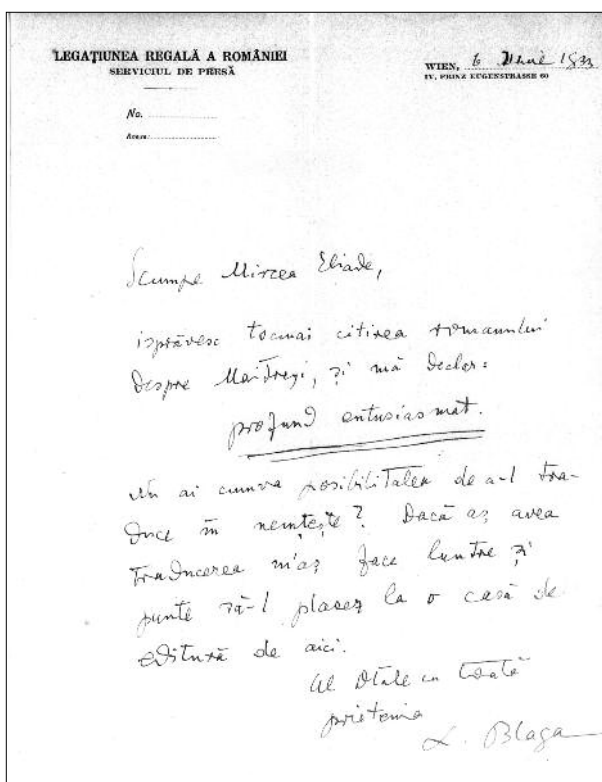 LEGAȚIUNEA REGALĂ A ROMÂNIEI
SERVICIUL DE PRESĂ
WIEN, 6 Iunie 1933
IV, PRINZ EUGENSTRASSE 60
No.
Anexe:
Scumpe Mircea Eliade,
isprăvesc tocmai citirea romanului
despre Maitreyi, și mă declar:
profund entusiasmat.
Nu ai cumva posibilitatea de a-l tra-
duce în nemțește? Dacă aș avea
traducerea m'aș face luntre și
punte să-l plasez la o casă de
editură de aici.
Al Dtale cu toată
prietenia
L. Blaga